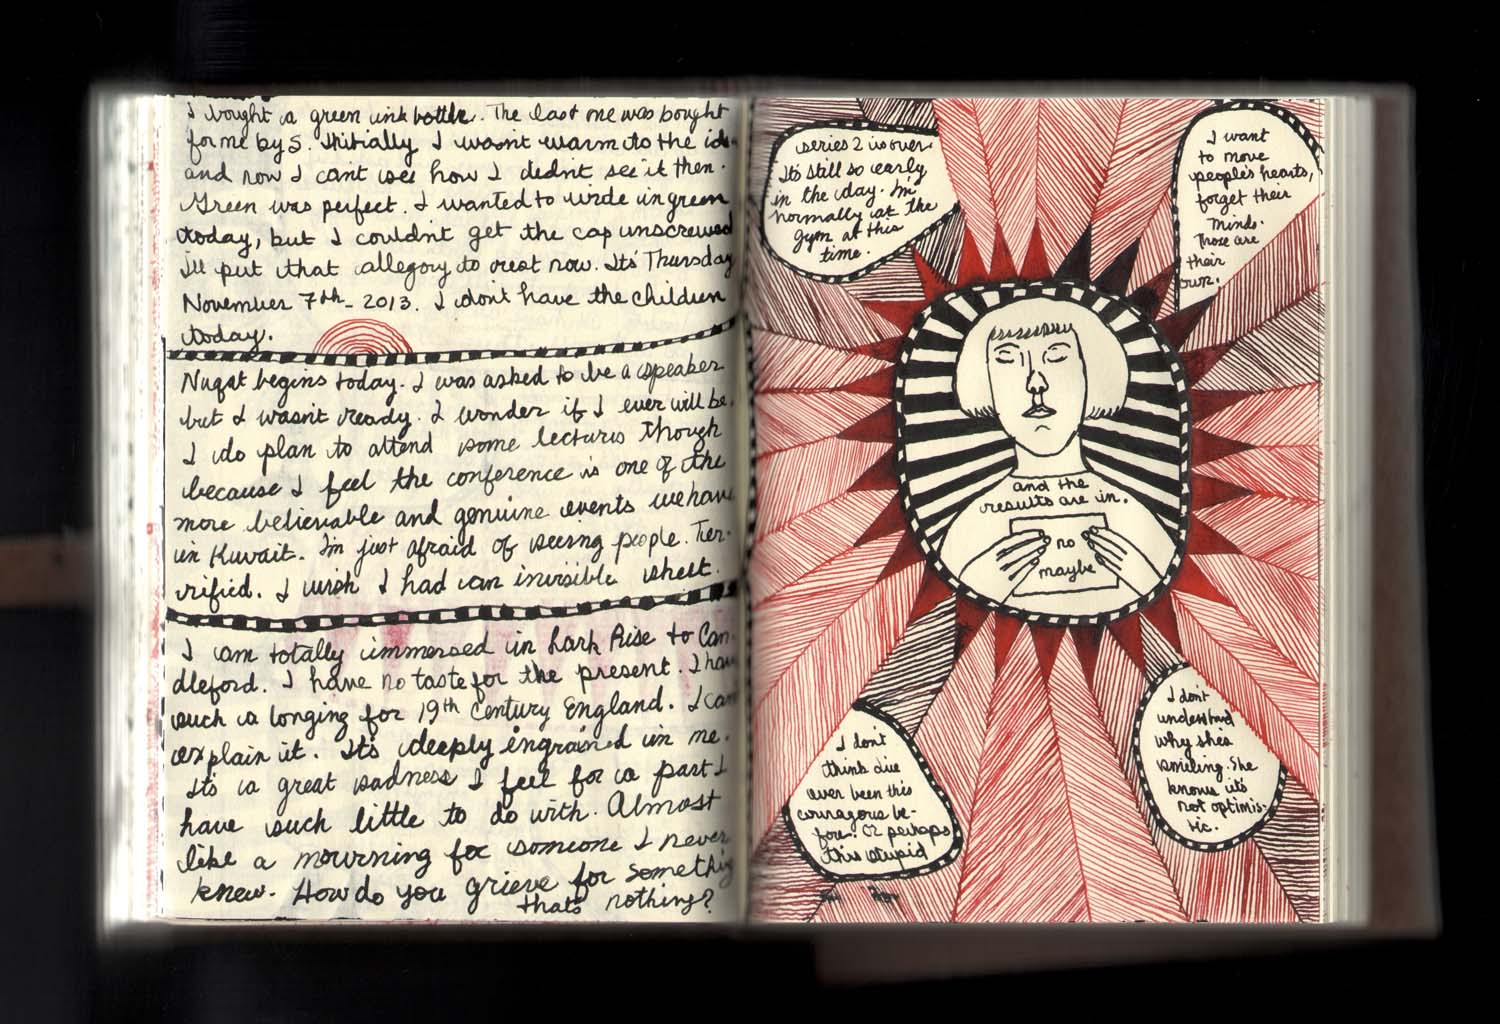 I bought a green ink bottle. The last one was bought
for me by S. Initially I wasn't warm to the idea
and now I cant see how I didnt see it then.
Green was perfect. I wanted to write in green
today, but I couldn't get the cap unscrewed
I'll put that allegory to rest now. Its Thursday
November 7th - 2013. I don't have the children
today.
Nuqat begins today. I was asked to be a speaker
but I wasn't ready. I wonder if I ever will be.
I do plan to attend some lectures though
because I feel the conference is one of the
more believable and genuine events we have
in Kuwait. I'm just afraid of seeing people. Ter-
rified. I wish I had an invisible sheet.
I am totally immersed in Lark Rise to Can-
dleford. I have no taste for the present. I have
such a longing for 19th Century England. I can
explain it. It's deeply ingrained in me.
It's a great sadness I feel for a part I
have such little to do with. Almost
like a mourning for someone I never
knew. How do you grieve for something
thats nothing?
series 2 is over.
Its still so early
in the day. I'm
normally at the
gym at this
time.
I want
to move
people's hearts,
forget their
minds.
Those are
their
own.
and the
results are in.
no
maybe
I don't
think I've
ever been this
courageous be-
fore. Or perhaps
this stupid
I don't
understand
why shes
smiling. She
knows it's
not optimis-
tic.